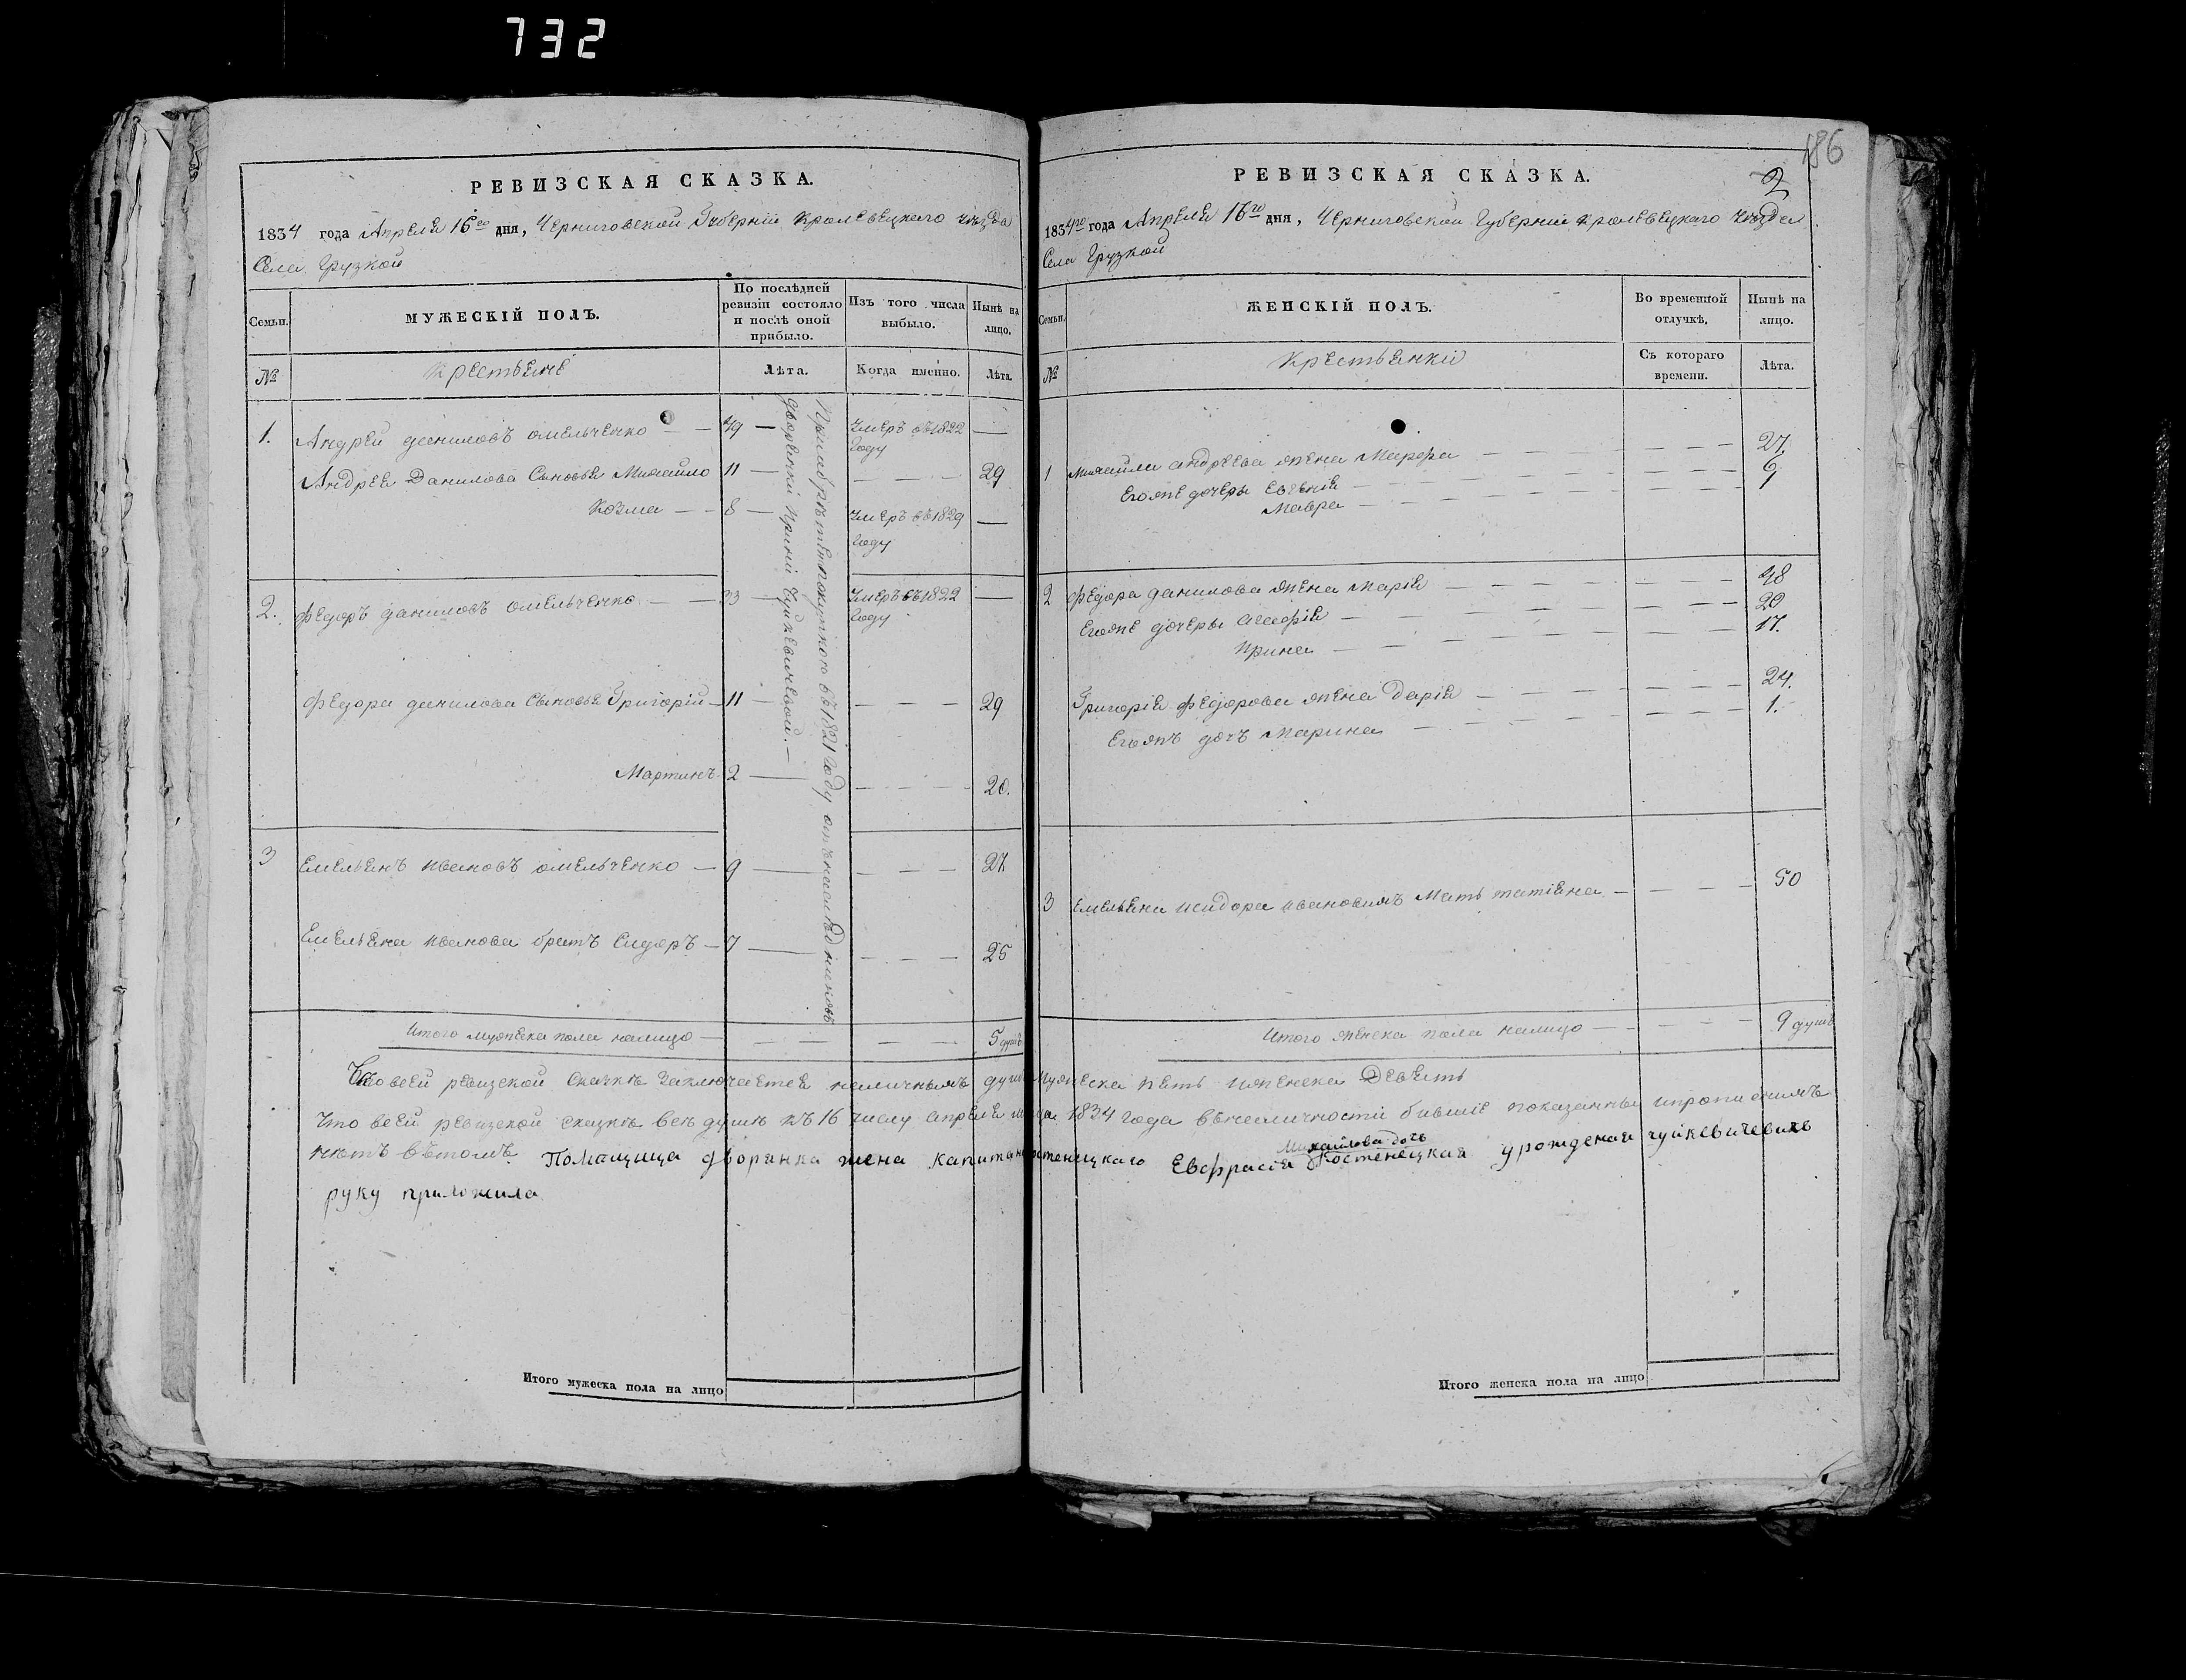 732
РЕВИЗСКАЯ СКАЗКА.
1834 года Апреля 16го дня, Черниговской Губерніи Кролевецкаго уезда
Села Грузкой
Семьи.
МУЖЕСКІЙ ПОЛЪ.
По послѣдней ревизіи состояло и послѣ оной прибыло.
Изъ того числа выбыло.
Нынѣ на лицо.
№
Крестьяне
Лѣта.
Когда именно.
Лѣта.
1. Андрей даниловъ омельченко — 49 — Умеръ въ 1822 Году —
Андрея Данилова Сыновья Михайло 11 — — — — 29
Козма — — 8 — Умеръ въ 1829 Году —
2. Федоръ даниловъ омельченко — — 33 — Умеръ въ 1822 Году —
Федора данилова Сыновья Григорій — 11 — — — — 29
Мартинъ 2 — — — — 20.
3 Емельянъ ивановъ омельченко — 9 — — — — 27.
Емельяна иванова братъ Сидоръ — 7 — — — — 25
Приабрѣтет покупкою въ 1821 году от наследниковъ
дворянки Чуйкевичевой. —
Итого мужеска пола налицо — — — — — 5 душъ
РЕВИЗСКАЯ СКАЗКА.
186
2
1834го года Апреля 16го дня, Черниговской Губерніи Кролевецкаго уезда
Села Грузкой
Семьи.
ЖЕНСКІЙ ПОЛЪ.
Во временной отлучкѣ.
Нынѣ на лицо.
№
Крестьянки
Съ котораго времени.
Лѣта.
1 Михайла андреева жена Марфа — — — — 27.
Егоже дочеры Евгенія — — — — 6
Мавра — — — —
2 Федора данилова жена Марія — — — — 48
Егоже дочеры Агафія — — — — 20
Ирина — — — — 17.
Григорія Федорова жена Дарія — — — — 24.
Егожъ дочъ Марина — — — — 1.
3 Емельяна исидора ивановихъ Мать татіяна — — — — 50
Итого женска пола налицо — — — — 9 душъ
Въ сей ревизской Сказкѣ Заключается наличнымъ душъ Мужеска пять иженска Девять
что всей ревизской сказкѣ всѣ душѣ къ 16 числу апреля м-ца 1834 года вѣналичности бившіе показанны ипрописнимъ
нѣтъ вѣтомъ Помѣщица дворянка жена капитана Костенецкаго Евфрасія Михайлова дочь Костенецкая урожденая чуйкевичевихъ
руку приложила
Итого мужеска пола на лицо
Итого женска пола на лицо